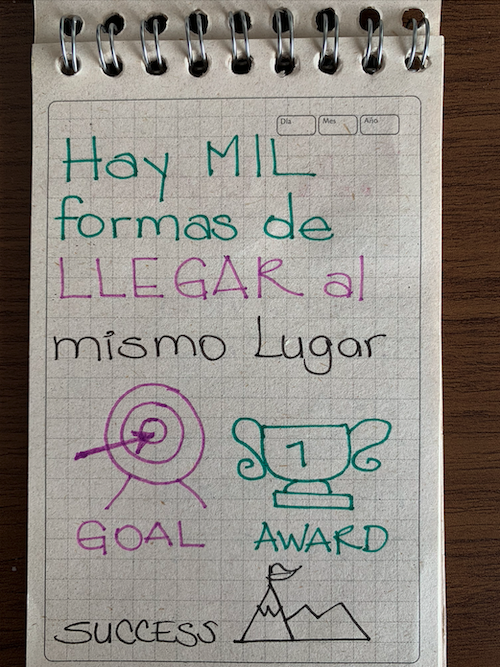 Día Mes Año
Hay MIL
formas de
LLEGAR al
mismo Lugar
1
GOAL AWARD
SUCCESS